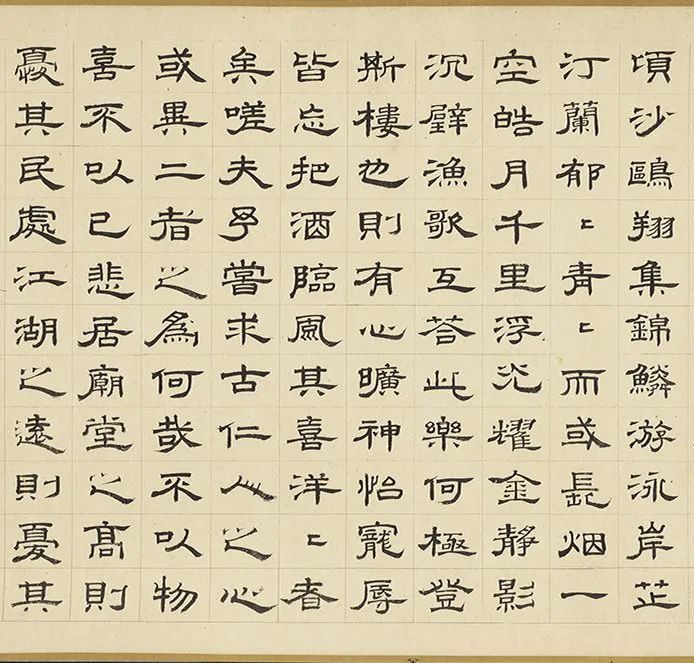 頃沙鷗翔集錦鱗游泳岸芷
汀蘭郁〻青〻而或長烟一
空皓月千里浮光耀金靜影
沉璧漁歌互荅此樂何極登
斯樓也則有心曠神怡寵辱
皆忘把酒臨風其喜洋〻者
矣嗟夫予嘗求古仁人之心
或異二者之爲何哉不以物
喜不以己悲居廟堂之髙則
憂其民處江湖之遠則憂其